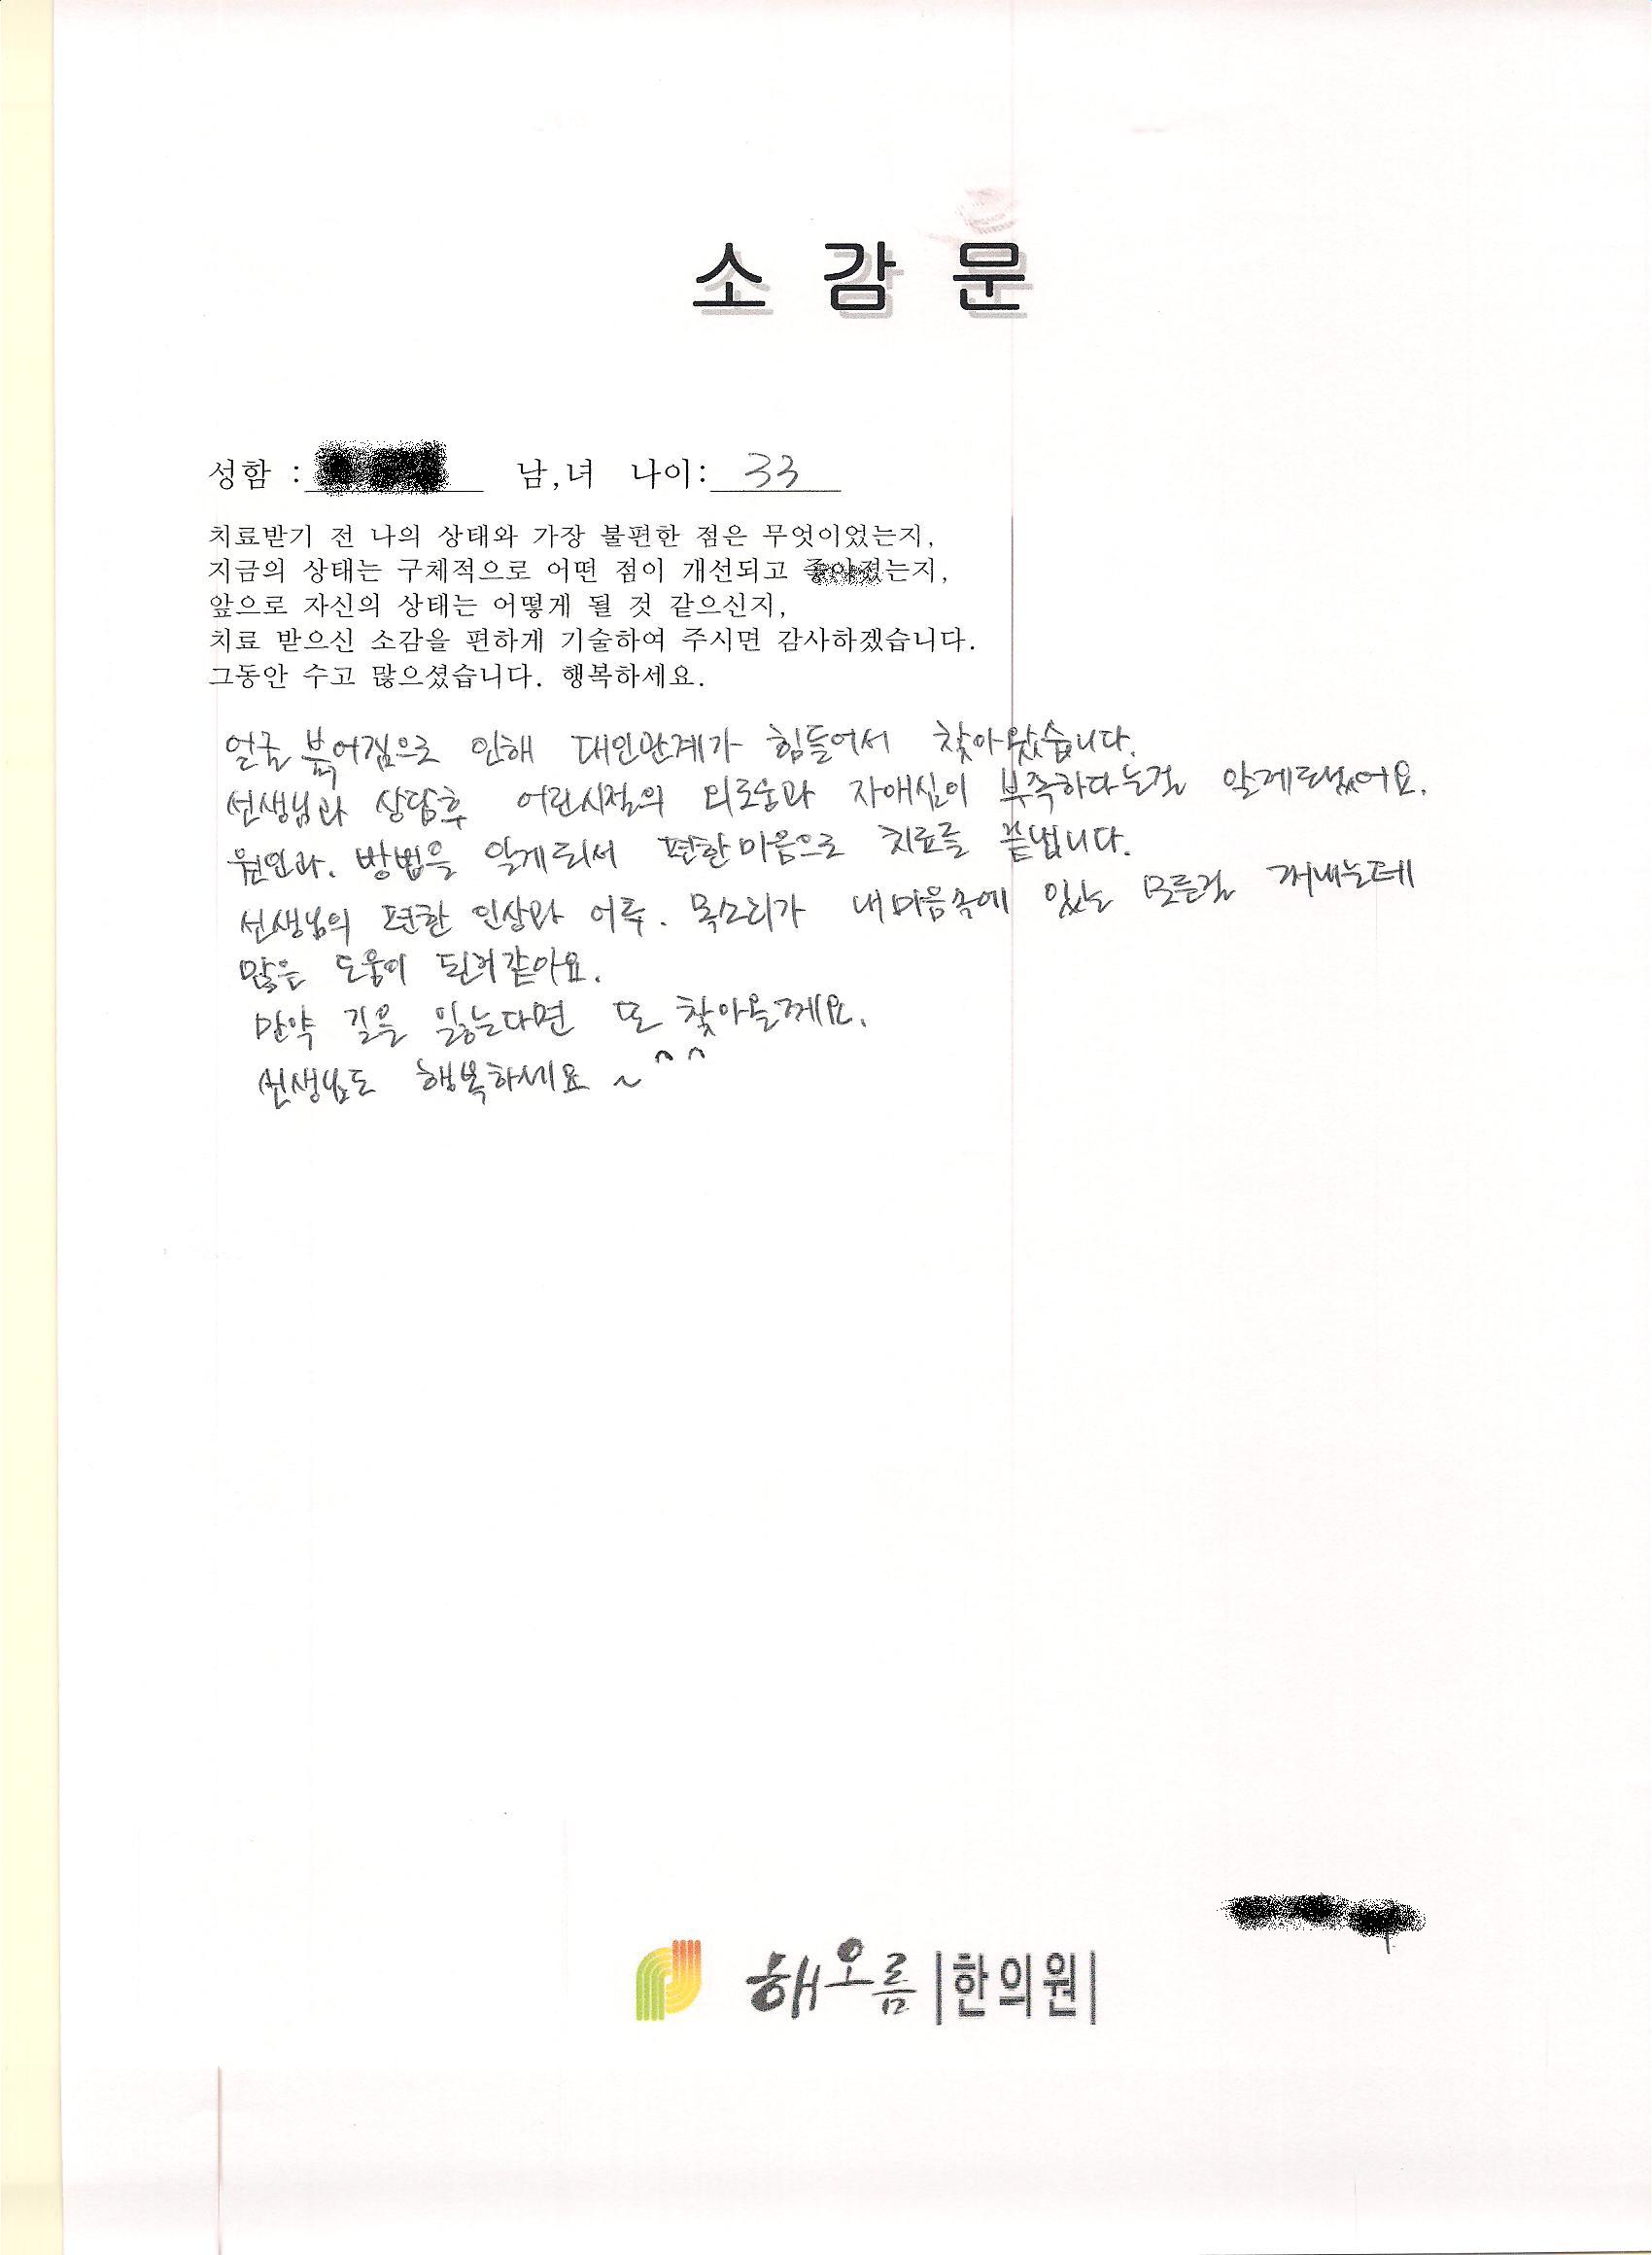 소 감 문
성함 : 남,녀 나이: 33
치료받기 전 나의 상태와 가장 불편한 점은 무엇이었는지,
지금의 상태는 구체적으로 어떤 점이 개선되고 좋아졌는지,
앞으로 자신의 상태는 어떻게 될 것 같으신지,
치료 받으신 소감을 편하게 기술하여 주시면 감사하겠습니다.
그동안 수고 많으셨습니다. 행복하세요.
얼굴 붉어짐으로 인해 대인관계가 힘들어서 찾아왔습니다.
선생님과 상담후 어린시절의 외로움과 자애심이 부족하다는걸 알게되었어요.
원인과. 방법을 알게되서 편한마음으로 치료를 끝냅니다.
선생님의 편한 인상과 어투. 목소리가 내마음속에 있는 모든걸 꺼내는데
많은 도움이 된거같아요.
만약 길을 잃는다면 또 찾아올께요.
선생님도 행복하세요 ~ ^^
해오름 |한의원|